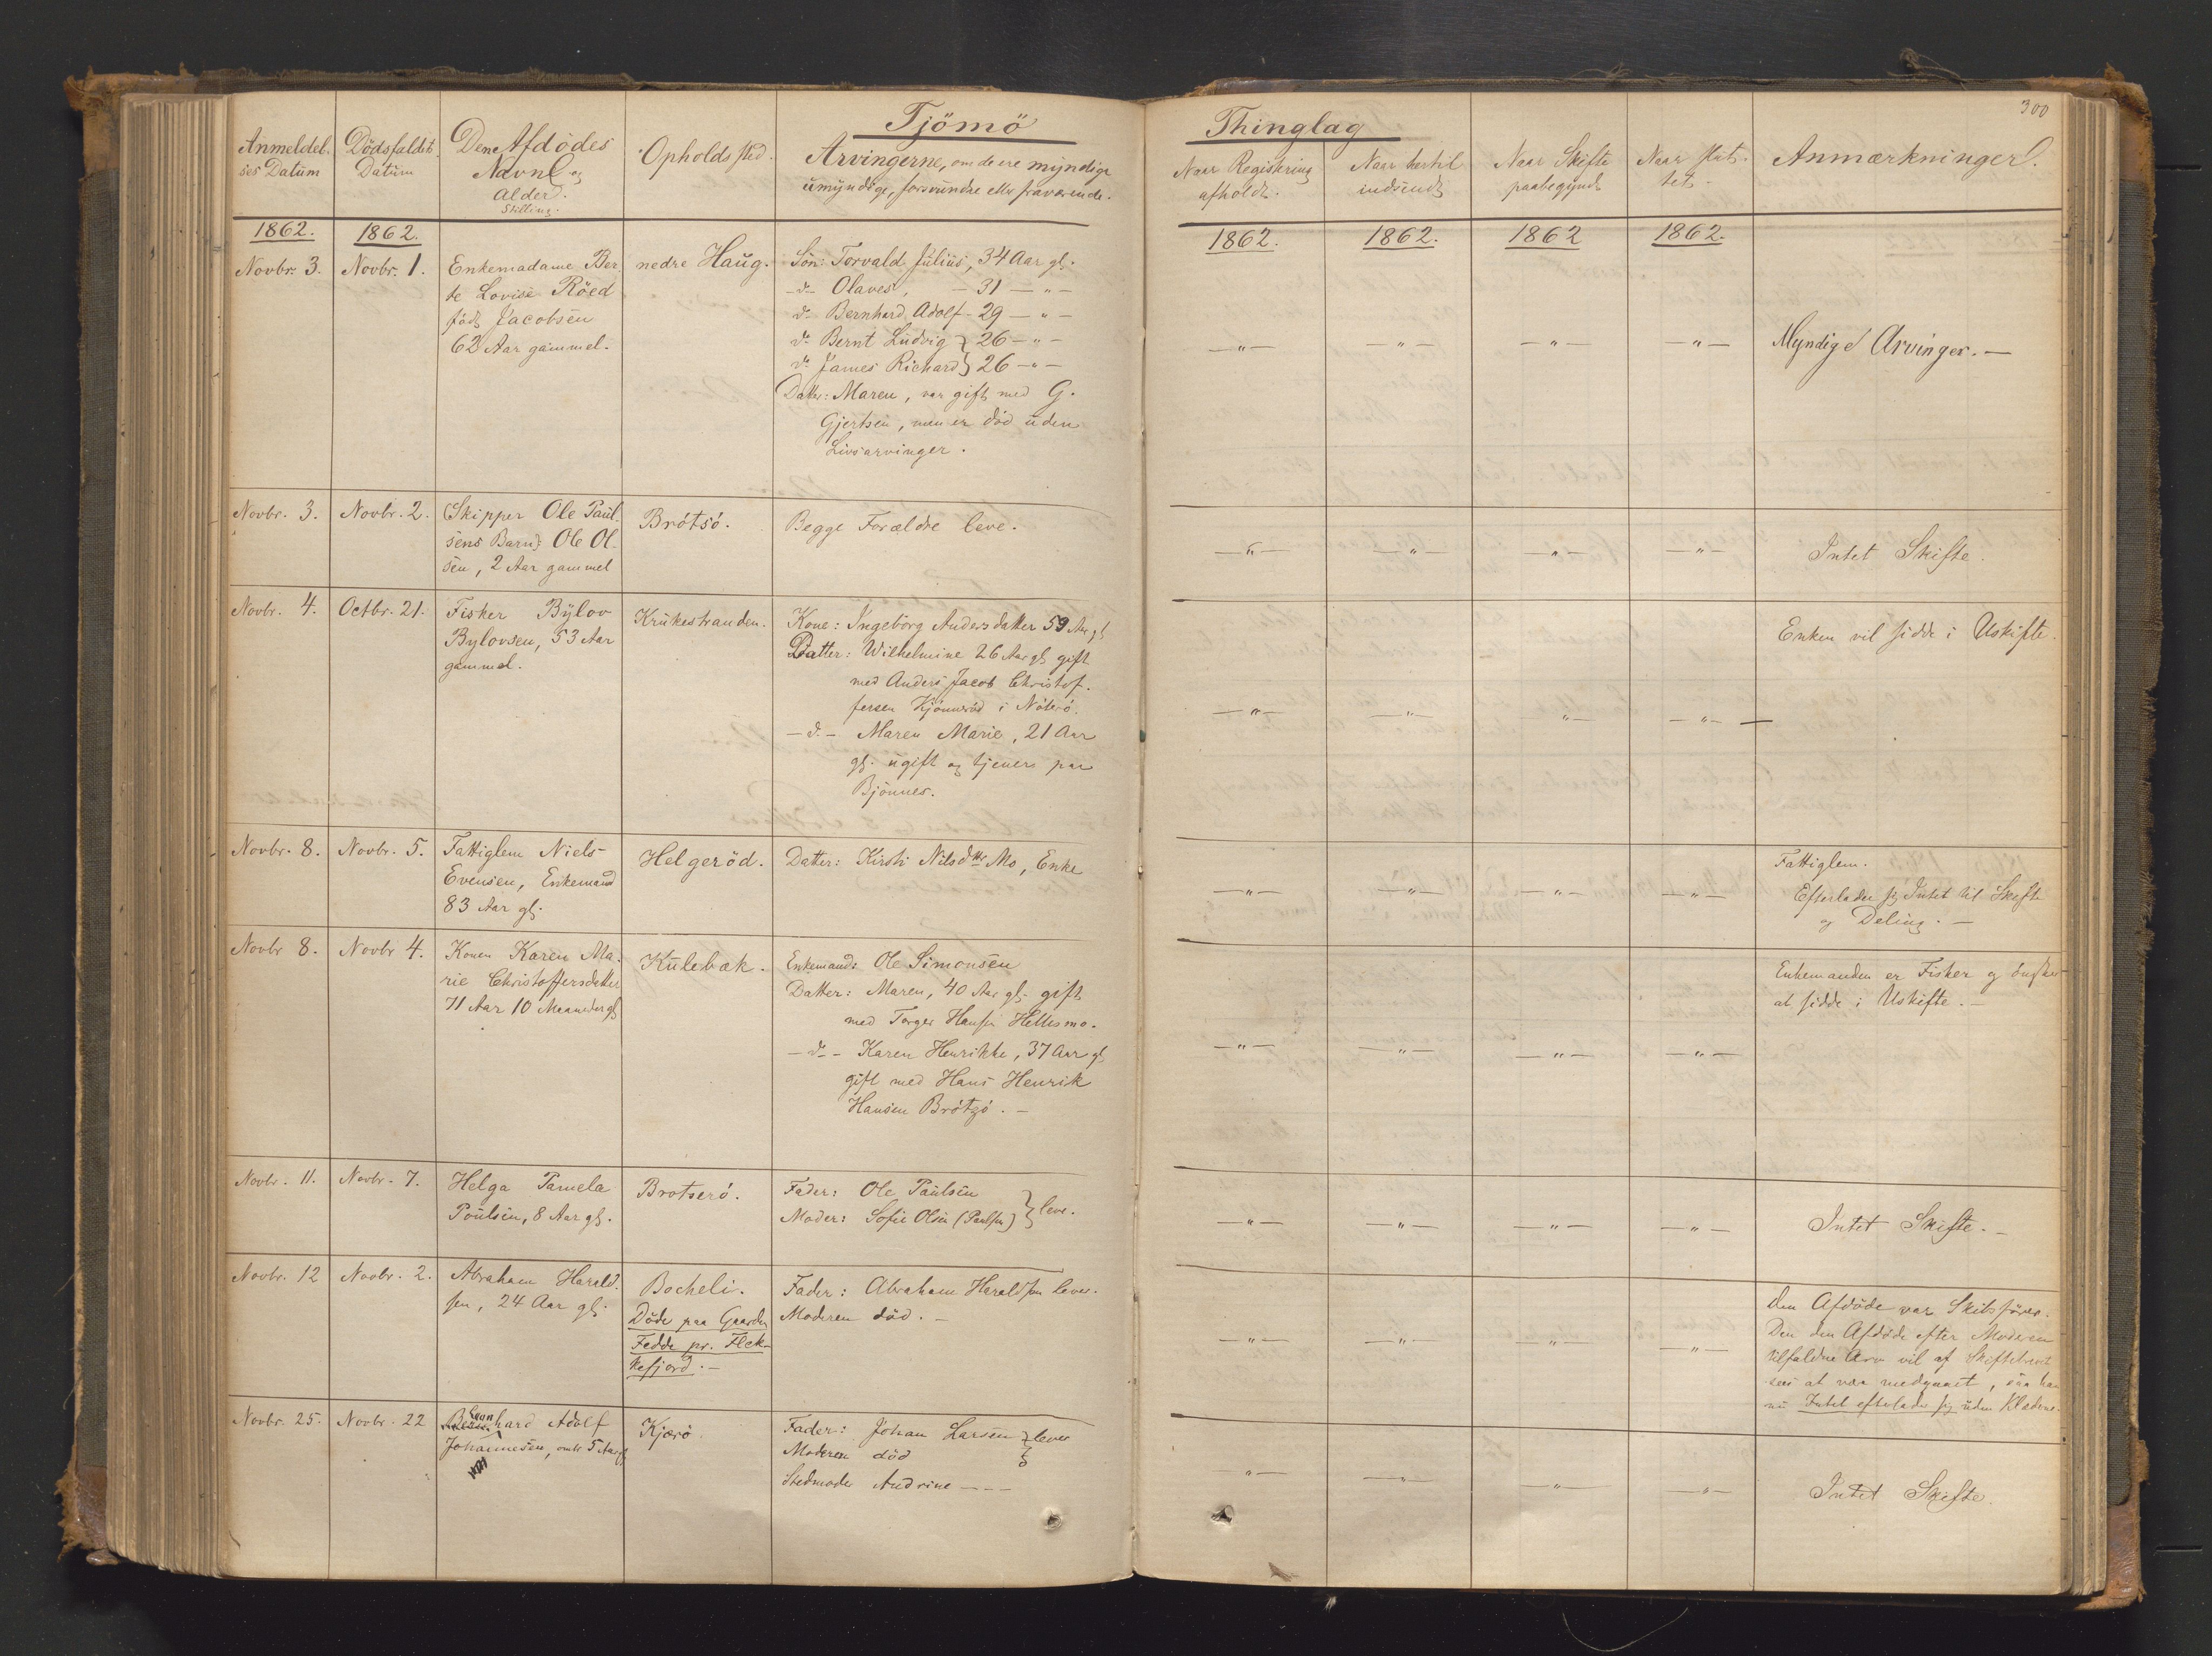 Tjömö
Anmeldel-
ses Datum
Dödsfaldets
Datum
Den Afdödes
Navn og
Alder.
Stilling.
Opholdssted.
Arvingerne, om de ere myndige
umyndige, forsvundne eller fraværende.
1862.
1862.
Novbr. 3.
Novbr. 1.
Enkemadame Ber
te Lovise Röed
föd Jacobsen
62 Aar gammel.
nedre Haug.
Sön: Torvald Julius, 34 Aar gl.
-d- Olaves, - 31 - " -
do Bernhard Adolf - 29 - " -
do Bernt Ludvig } 26 - " -
do James Richard } 26 - " -
Datter: Maren, var gift med G.
Gjertsen, men er död uden
Livsarvinger.
Novbr. 3.
Novbr. 2.
(Skipper Ole Paul-
sens Barn): Ole Ol-
sen, 2 Aar gammel
Brötsö.
Begge Forældre leve.
Novbr. 4.
Octbr. 21.
Fisker Bylov
Bylovsen, 53 Aar
gammel.
Krukestranden.
Kone: Ingeborg Andersdatter 59 Aar gl
Datter: Wilhelmine 26 Aar gl gift
med Anders Jacob Christof-
fersen Kjönneröd i Nöterö.
- d. - Maren Marie, 21 Aar
gl. ugift og tjener paa
Bjönnes.
Novbr. 8.
Novbr. 5.
Fattiglem Niels
Evensen, Enkemand
83 Aar gl.
Helgeröd.
Datter: Kirsti Nilsdtr Mo, Enke
Novbr 8.
Novbr 4.
Konen Karen Ma-
rie Christoffersdatter
71 Aar 10 Maaneder gl
Kulebæk.
Enkemand: Ole Simonsen
Datter: Maren, 40 Aar gl. gift
med Torger Hansen Hellesmo.
- do - Karen Henrikke, 37 Aar gl
gift med Hans Henrik
Hansen Brötzö. -
Novbr. 11.
Novbr. 7.
Helga Pamela
Poulsen, 8 Aar gl.
Brotserö.
Fader: Ole Paulsen
Moder: Sofie Olsen (Paulsen) } leve.
Novbr. 12
Novbr. 2.
Abraham Harald-
sen, 24 Aar gl.
Bocheli.
Döde paa Gaarden
Fedde pr. Flek-
kefjord. -
Fader: Abraham Haraldsen lever.
Moderen död. -
Novbr. 25.
Novbr. 22
Leonhard Adolf
Johannesen, omtr 5 Aar gl
Kjærö.
Fader: Johan Larsen } lever
Moderen död
Stedmoder Andrine - - -
Thinglag
300
Naar Registrering
afholdt.
Naar hertil
indsendt
Naar Skifte
paabegyndt
Naar slut-
tet.
Anmærkninger.
1862.
1862.
1862
1862.
- " -
- " -
- " -
- " -
Myndige Arvinger. -
- " -
- " -
- " -
- " -
Intet Skifte.
Enken vil sidde i Uskifte.
- " -
- " -
- " -
- " -
Fattiglem.
Efterlader sig Intet til Skifte
og Deling. -
- " -
- " -
- " -
- " -
Enkemanden er Fisker og önsker
at sidde i Uskifte. -
- " -
- " -
- " -
- " -
- " -
- " -
- " -
- " -
Intet Skifte. -
Den Afdöde var Skibsförer.
Den den Afdöde efter Moderen
tilfaldne Arv vil af Skiftebrevet
sees at være medgaaet, saa han
nu Intet efterlader sig uden Klæderne.
- " -
- " -
- " -
- " -
- " -
- " -
- " -
- " -
Intet Skifte.